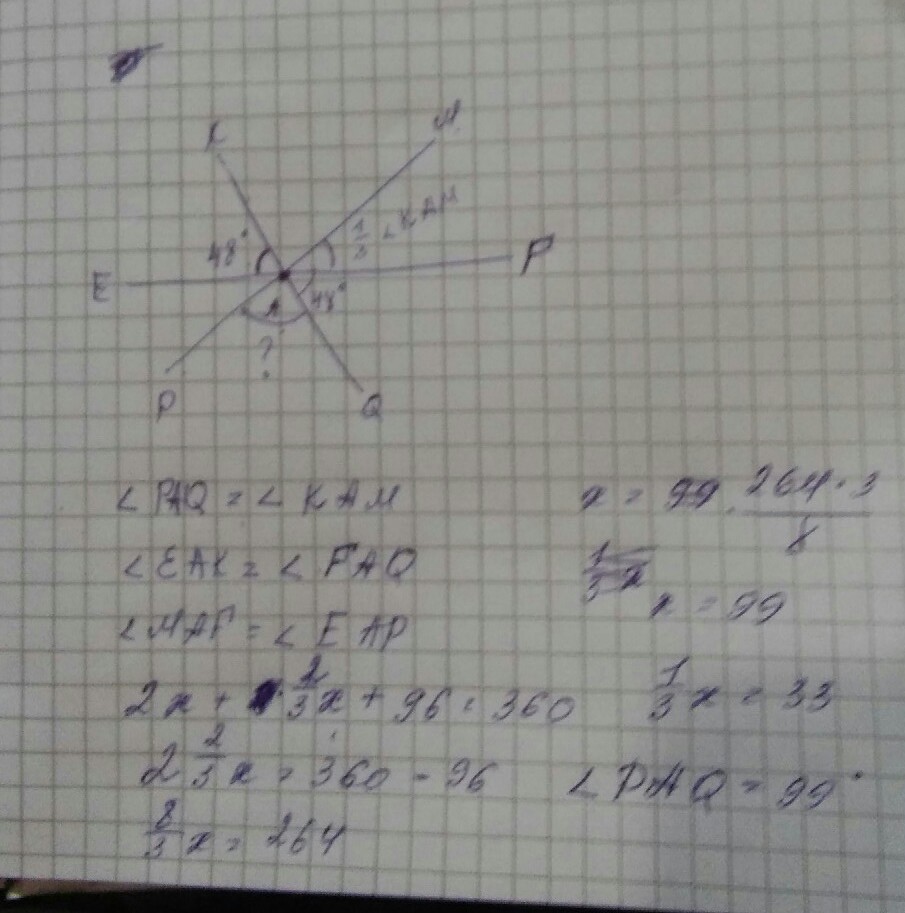 K
M
48°
1/3 ∠KAM
E
F
A
48°
?
P
Q
∠PAQ = ∠KAM
∠EAK = ∠FAQ
∠MAF = ∠EAP
2x + 2/3x + 96 = 360
2 2/3x = 360 - 96
8/3x = 264
x = 99. 264·3/8
1/3x
x = 99
1/3x = 33
∠PAQ = 99°